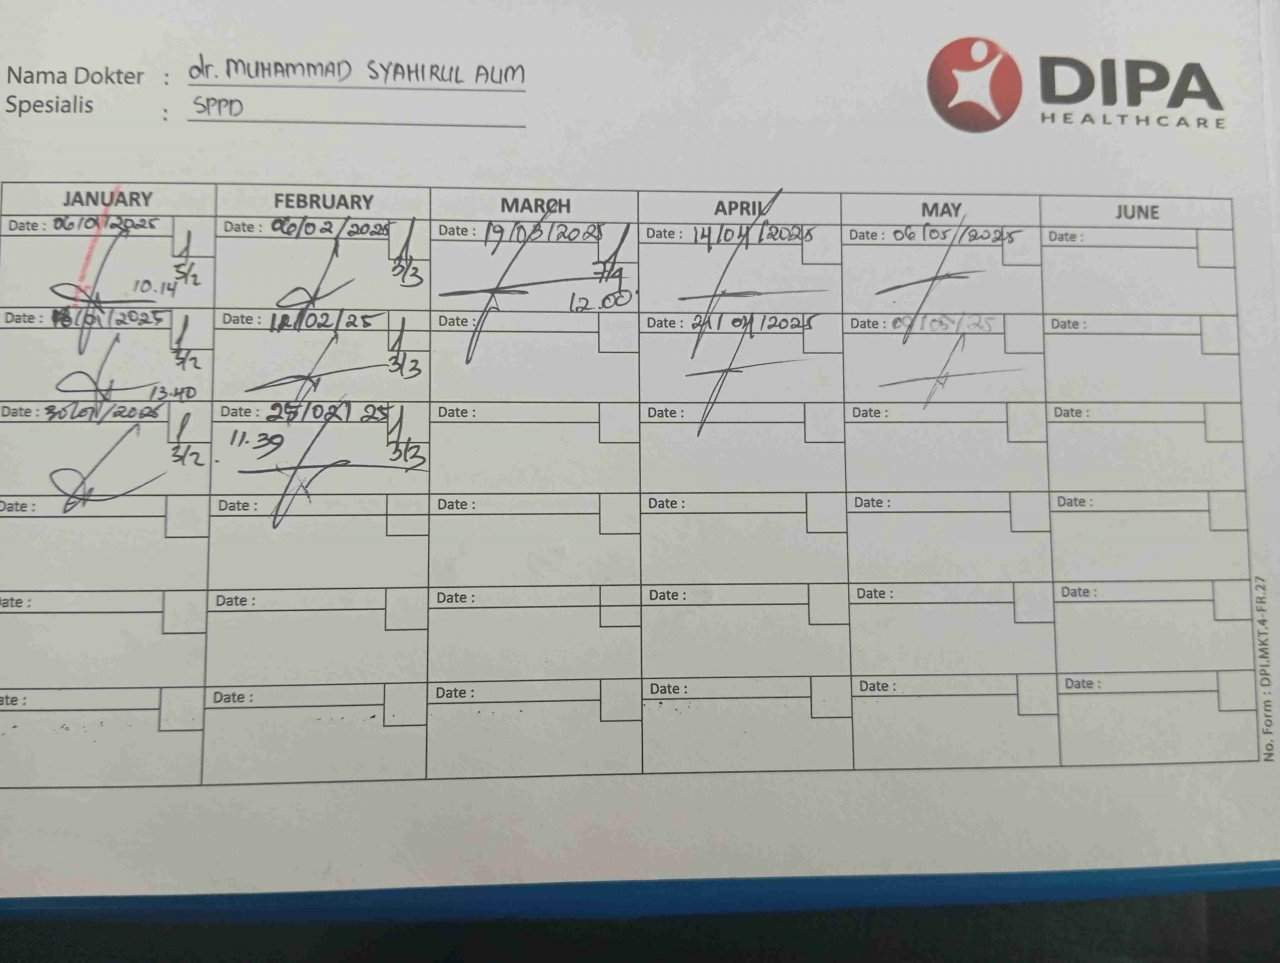 Nama Dokter : dr. MUHAMMAD SYAHIRUL ALIM
Spesialis : SPPD
DIPA
HEALTHCARE
JANUARY FEBRUARY MARCH APRIL MAY JUNE
Date : 06/01/2025 Date : 06/02/2025 Date : 19/03/2025 Date : 14/04/2025 Date : 06/05/2025 Date :
3/3 7/4
10.14 12.00
Date : /01/2025 Date : 12/02/25 Date : Date : 21/04/2025 Date : /05/25 Date :
3/2 3/3
13.40
Date : 30/01/2025 Date : 25/02/25 Date : Date : Date : Date :
3/2 11.39 3/3
Date : Date : Date : Date : Date : Date :
Date : Date : Date : Date : Date : Date :
Date : Date : Date : Date : Date : Date :
No. Form : DPI.MKT.4-FR.27